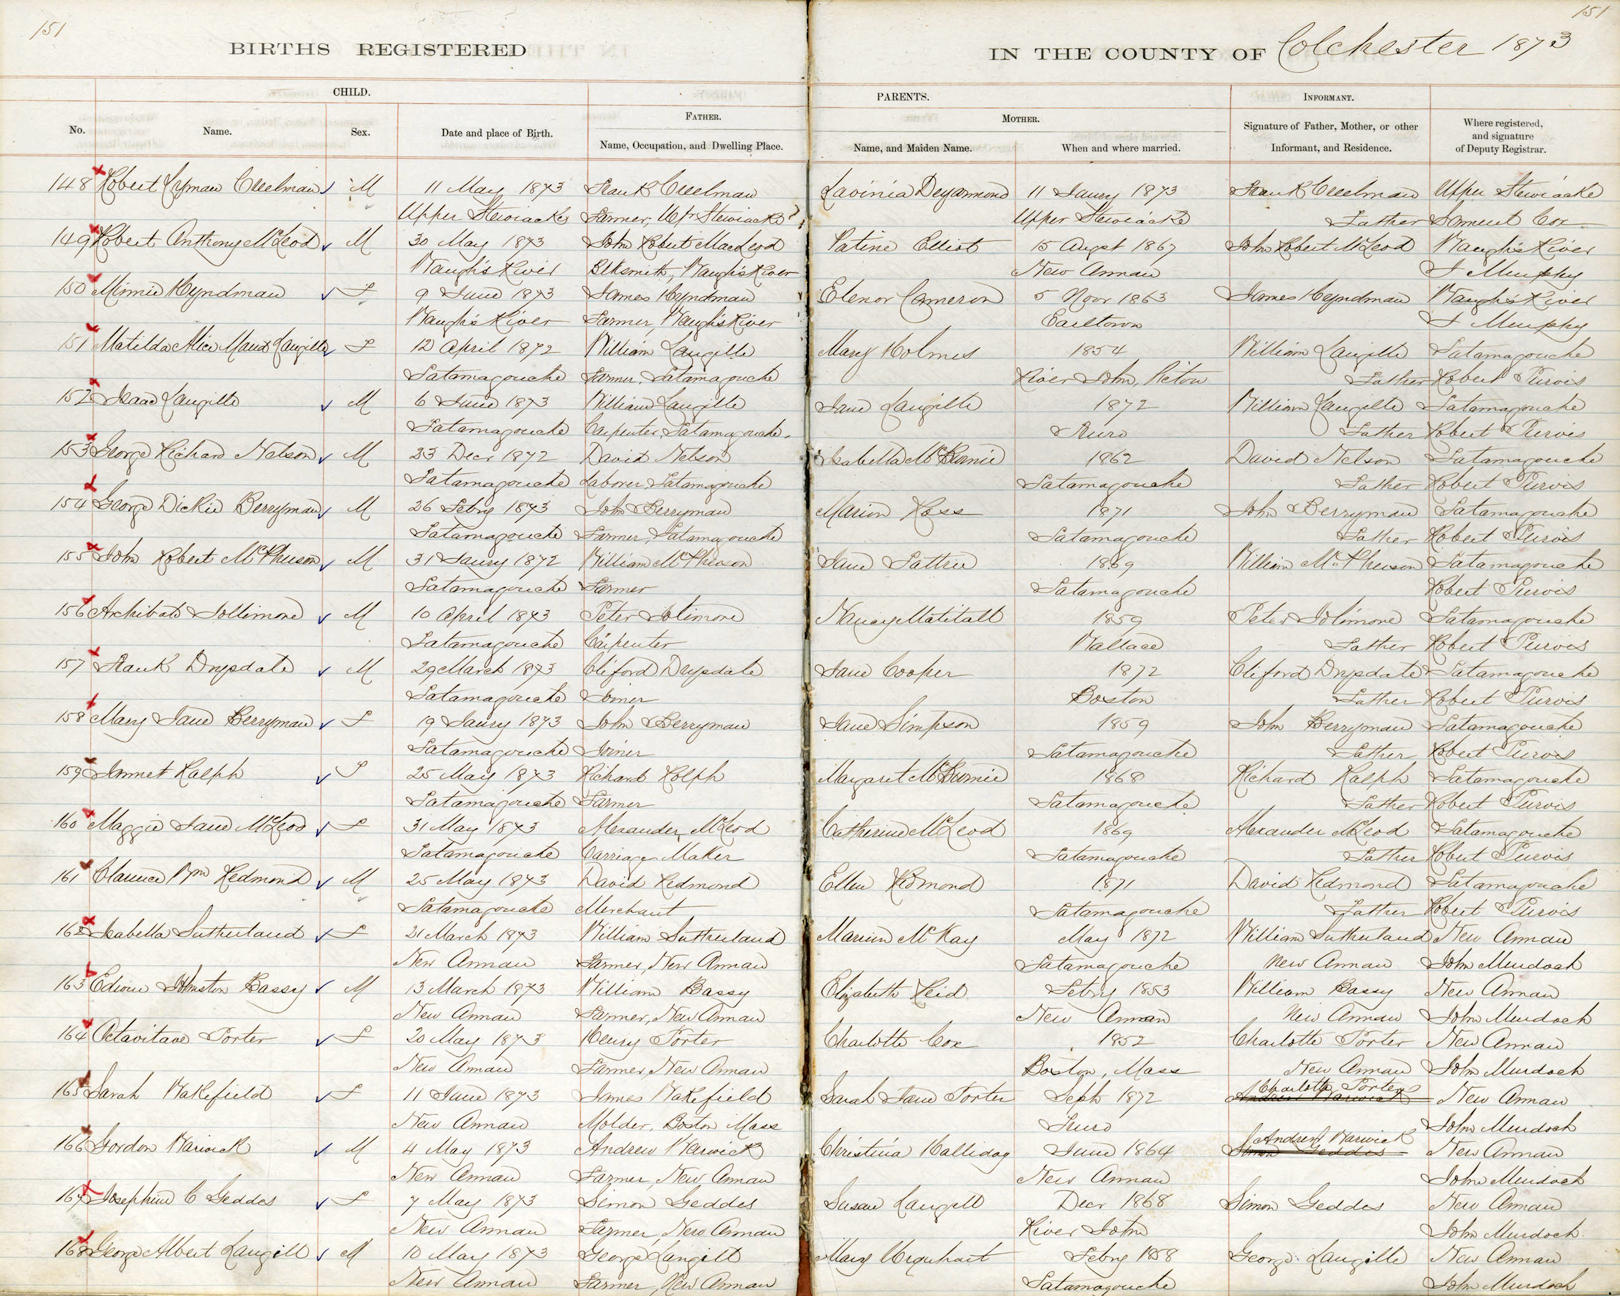 151
151
BIRTHS REGISTERED
IN THE COUNTY OF Colchester 1873
CHILD.
PARENTS.
INFORMANT.
No.
Name.
Sex.
Date and place of Birth.
FATHER.
Name, Occupation, and Dwelling Place.
MOTHER.
Name, and Maiden Name.
When and where married.
Signature of Father, Mother, or other Informant, and Residence.
Where registered, and signature of Deputy Registrar.
148 Robert Lyman Creelman M 11 May 1873 Frank Creelman Lavinia Deyarmond 11 Jany 1873 Frank Creelman Upper Stewiacke
Upper Stewiacke Farmer, Upr Stewiacke? Upper Stewiacke Father Samuel Cox
149 Robert Anthony McLeod M 30 May 1873 John Robert MacLeod Elliot 15 Augst 1867 John Robert McLeod Waugh's River
Waugh's River Blksmith, Waugh's River New Annan J Murphy
150 Minnie Hyndman F 9 June 1873 James Hyndman Elenor Cameron 5 Novr 1863 James Hyndman Waugh's River
Waugh's River Farmer, Waugh's River Earltown J Murphy
151 Matilda Alice Maud Langille F 12 April 1872 William Langille Mary Holmes 1854 William Langille Tatamagouche
Tatamagouche Farmer, Tatamagouche River John, Pictou Father Robert Purvis
152 Isaac Langille M 6 June 1873 William Langille Jane Langille 1872 William Langille Tatamagouche
Tatamagouche Carpenter, Tatamagouche. Truro Father Robert Purvis
153 George Richard Nelson M 23 Decr 1872 David Nelson Isabella 1862 David Nelson Tatamagouche
Tatamagouche Laborer Tatamagouche Tatamagouche Father Robert Purvis
154 George Dickie Berryman M 26 Febry 1873 John Berryman Marion Ross 1871 John Berryman Tatamagouche
Tatamagouche Farmer, Tatamagouche Tatamagouche Father Robert Purvis
155 John Robert McPherson M 31 Jany 1872 William McPherson Jane 1869 William McPherson Tatamagouche
Tatamagouche Farmer Tatamagouche Robert Purvis
156 Archibald Sollimore M 10 April 1873 Peter Solimore Nancy Matitall 1859 Peter Solimore Tatamagouche
Tatamagouche Carpenter Wallace Father Robert Purvis
157 Frank Drysdale M 29 March 1873 Cliford Drysdale Jane Cooper 1872 Cliford Drysdale Tatamagouche
Tatamagouche Joiner Boston Father Robert Purvis
158 Mary Jane Berryman F 19 Jany 1873 John Berryman Jane Simpson 1859 John Berryman Tatamagouche
Tatamagouche Joiner Tatamagouche Father Robert Purvis
159 Jannet Ralph F 25 May 1873 Richard Rolph Margaret McBurnie 1868 Richard Ralph Tatamagouche
Tatamagouche Farmer Tatamagouche Father Robert Purvis
160 Maggie Jane McLeod F 31 May 1873 Alexander McLeod Catherine McLeod 1869 Alexander McLeod Tatamagouche
Tatamagouche Carriage Maker Tatamagouche Father Robert Purvis
161 Clarence Wm Redmond M 25 May 1873 David Redmond Ellen Redmond 1871 David Redmond Tatamagouche
Tatamagouche Merchant Tatamagouche Father Robert Purvis
162 Isabella Sutherland F 21 March 1873 William Sutherland Marion McKay May 1872 William Sutherland New Annan
New Annan Farmer, New Annan Tatamagouche New Annan John Murdoch
163 Johnston Bassy M 13 March 1873 William Bassy Elizabeth Reid Febry 1853 William Bassy New Annan
New Annan Farmer, New Annan New Annan New Annan John Murdoch
164 Octavitave Porter F 20 May 1873 Henry Porter Charlotte Cox 1852 Charlotte Porter New Annan
New Annan Farmer, New Annan Boston, Mass New Annan John Murdoch
165 Sarah Wakefield F 11 June 1873 James Wakefield Sarah Jane Porter Sept 1872 Charlotte Porter Andrew Warwick New Annan
New Annan Molder, Boston Mass Truro John Murdoch
166 Gordon Warwick M 4 May 1873 Andrew Warwick Christina Halliday June 1864 Andrew Warwick Simon Geddes New Annan
New Annan Farmer, New Annan New Annan John Murdoch
167 Josephine C Geddes F 7 May 1873 Simon Geddes Susan Langill Decr 1868 Simon Geddes New Annan
New Annan Farmer, New Annan River John John Murdoch
168 George Albert Langill M 10 May 1873 George Langill Mary Urquhart Febry 1858 George Langille New Annan
New Annan Farmer, New Annan Tatamagouche John Murdoch